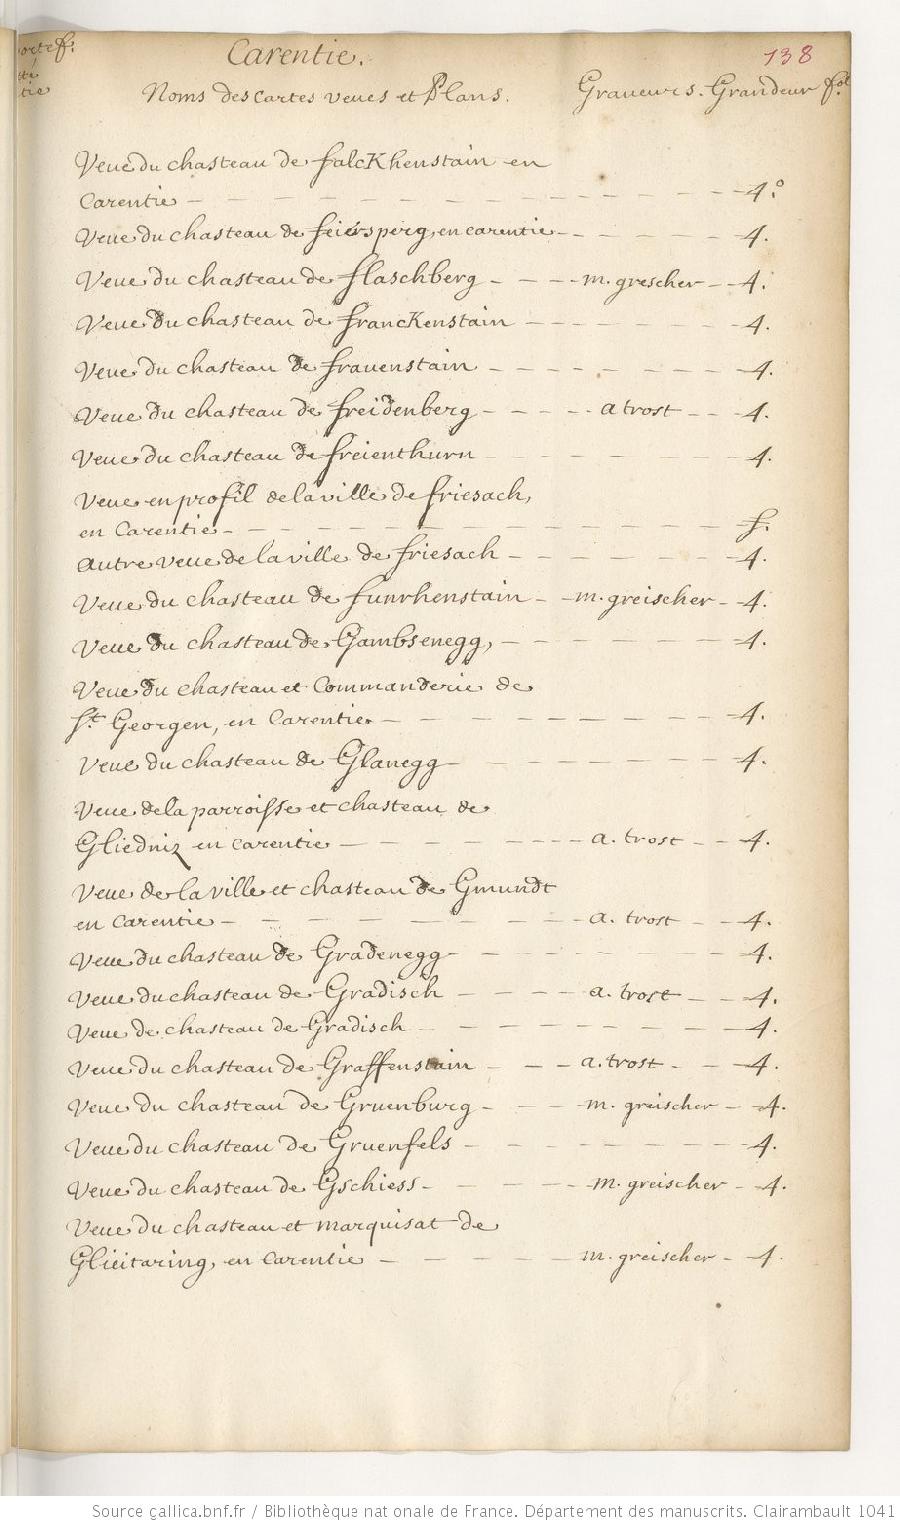 Carentie.
138
Noms des cartes veues et Plans. Graueurs. Grandeur fol.
Veue du chasteau de falcKhenstain en
Carentie 4.º
Veue du chasteau de feiersperg, en carentie 4.
Veue du chasteau de flaschberg m. grescher 4.
Veue du chasteau de francKenstain 4.
Veue du chasteau de frauenstain 4.
Veue du chasteau de freidenberg a trost 4.
Veue du chasteau de freienthurn 4.
Veue en profil de la ville de friesach,
en Carentie f.
autre veue de la ville de friesach 4.
Veue du chasteau de funrhenstain m. greischer 4.
Veue du chasteau de Gambsenegg, 4.
Veue du chasteau et Commanderie de
St. Georgen, en Carentie 4.
Veue du chasteau de Glanegg 4.
Veue de la parroisse et chasteau de
Gliedniz en carentie a. trost 4.
Veue de la ville et chasteau de Gmundt
en carentie a. trost 4.
Veue du chasteau de Gradenegg 4.
Veue du chasteau de Gradisch a. trost 4.
Veue de chasteau de Gradisch 4.
Veue du chasteau de Graffenstain a. trost 4.
Veue du chasteau de Gruenburg m. greischer 4.
Veue du chasteau de Gruenfels 4.
Veue du chasteau de Gschiess m. greischer 4.
Veue du chasteau et marquisat de
Glieitaring, en Carentie m. greischer 4
Source gallica.bnf.fr / Bibliothèque nationale de France. Département des manuscrits. Clairambault 1041